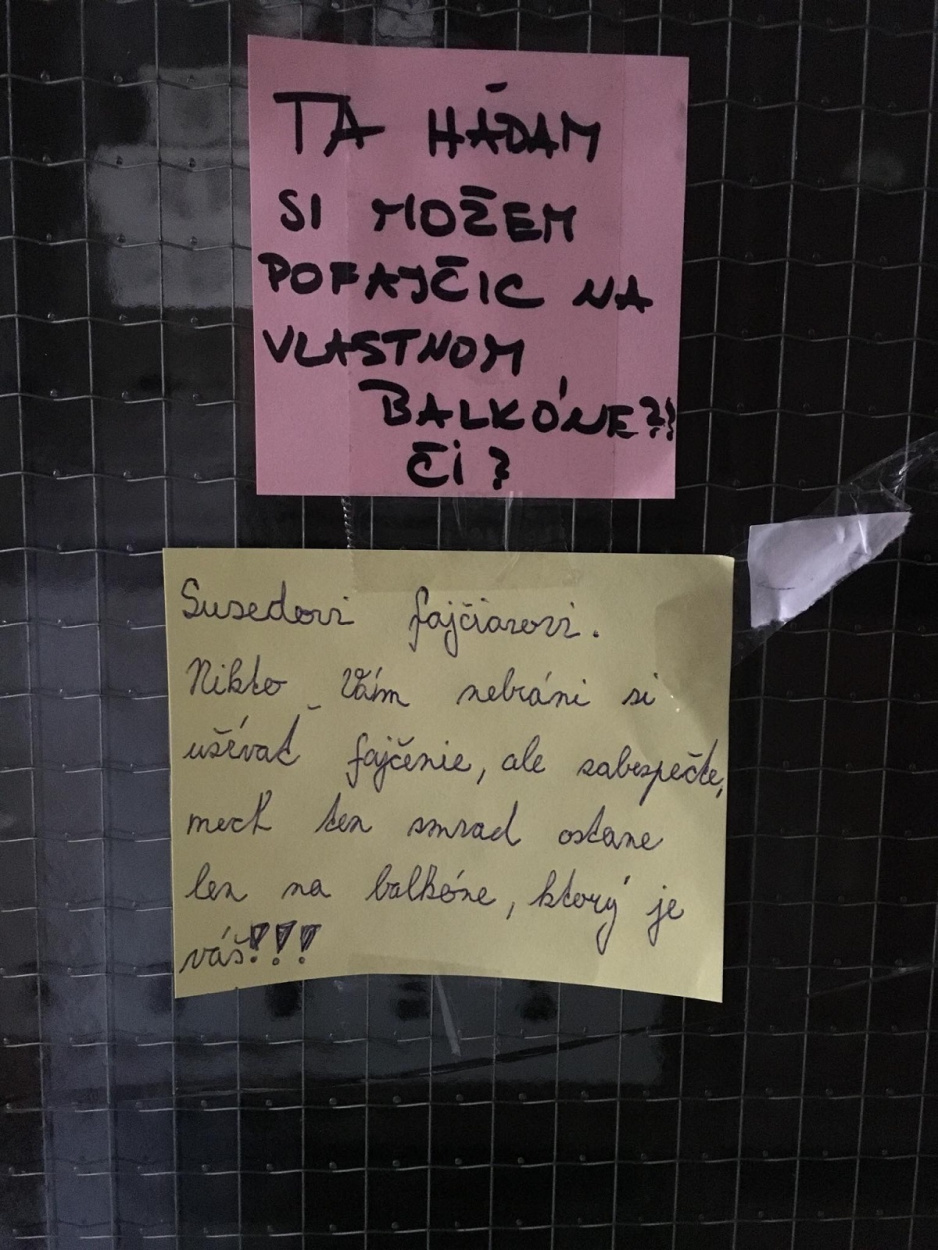 TA HÁDAM
SI MOŽEM
POFAJČIC NA
VLASTNOM
BALKÓNE?!
ČI?
Susedovi fajčiarovi.
Nikto Vám nebráni si
užívať fajčenie, ale zabezpečte,
nech ten smrad ostane
len na balkóne, ktorý je
váš!!!